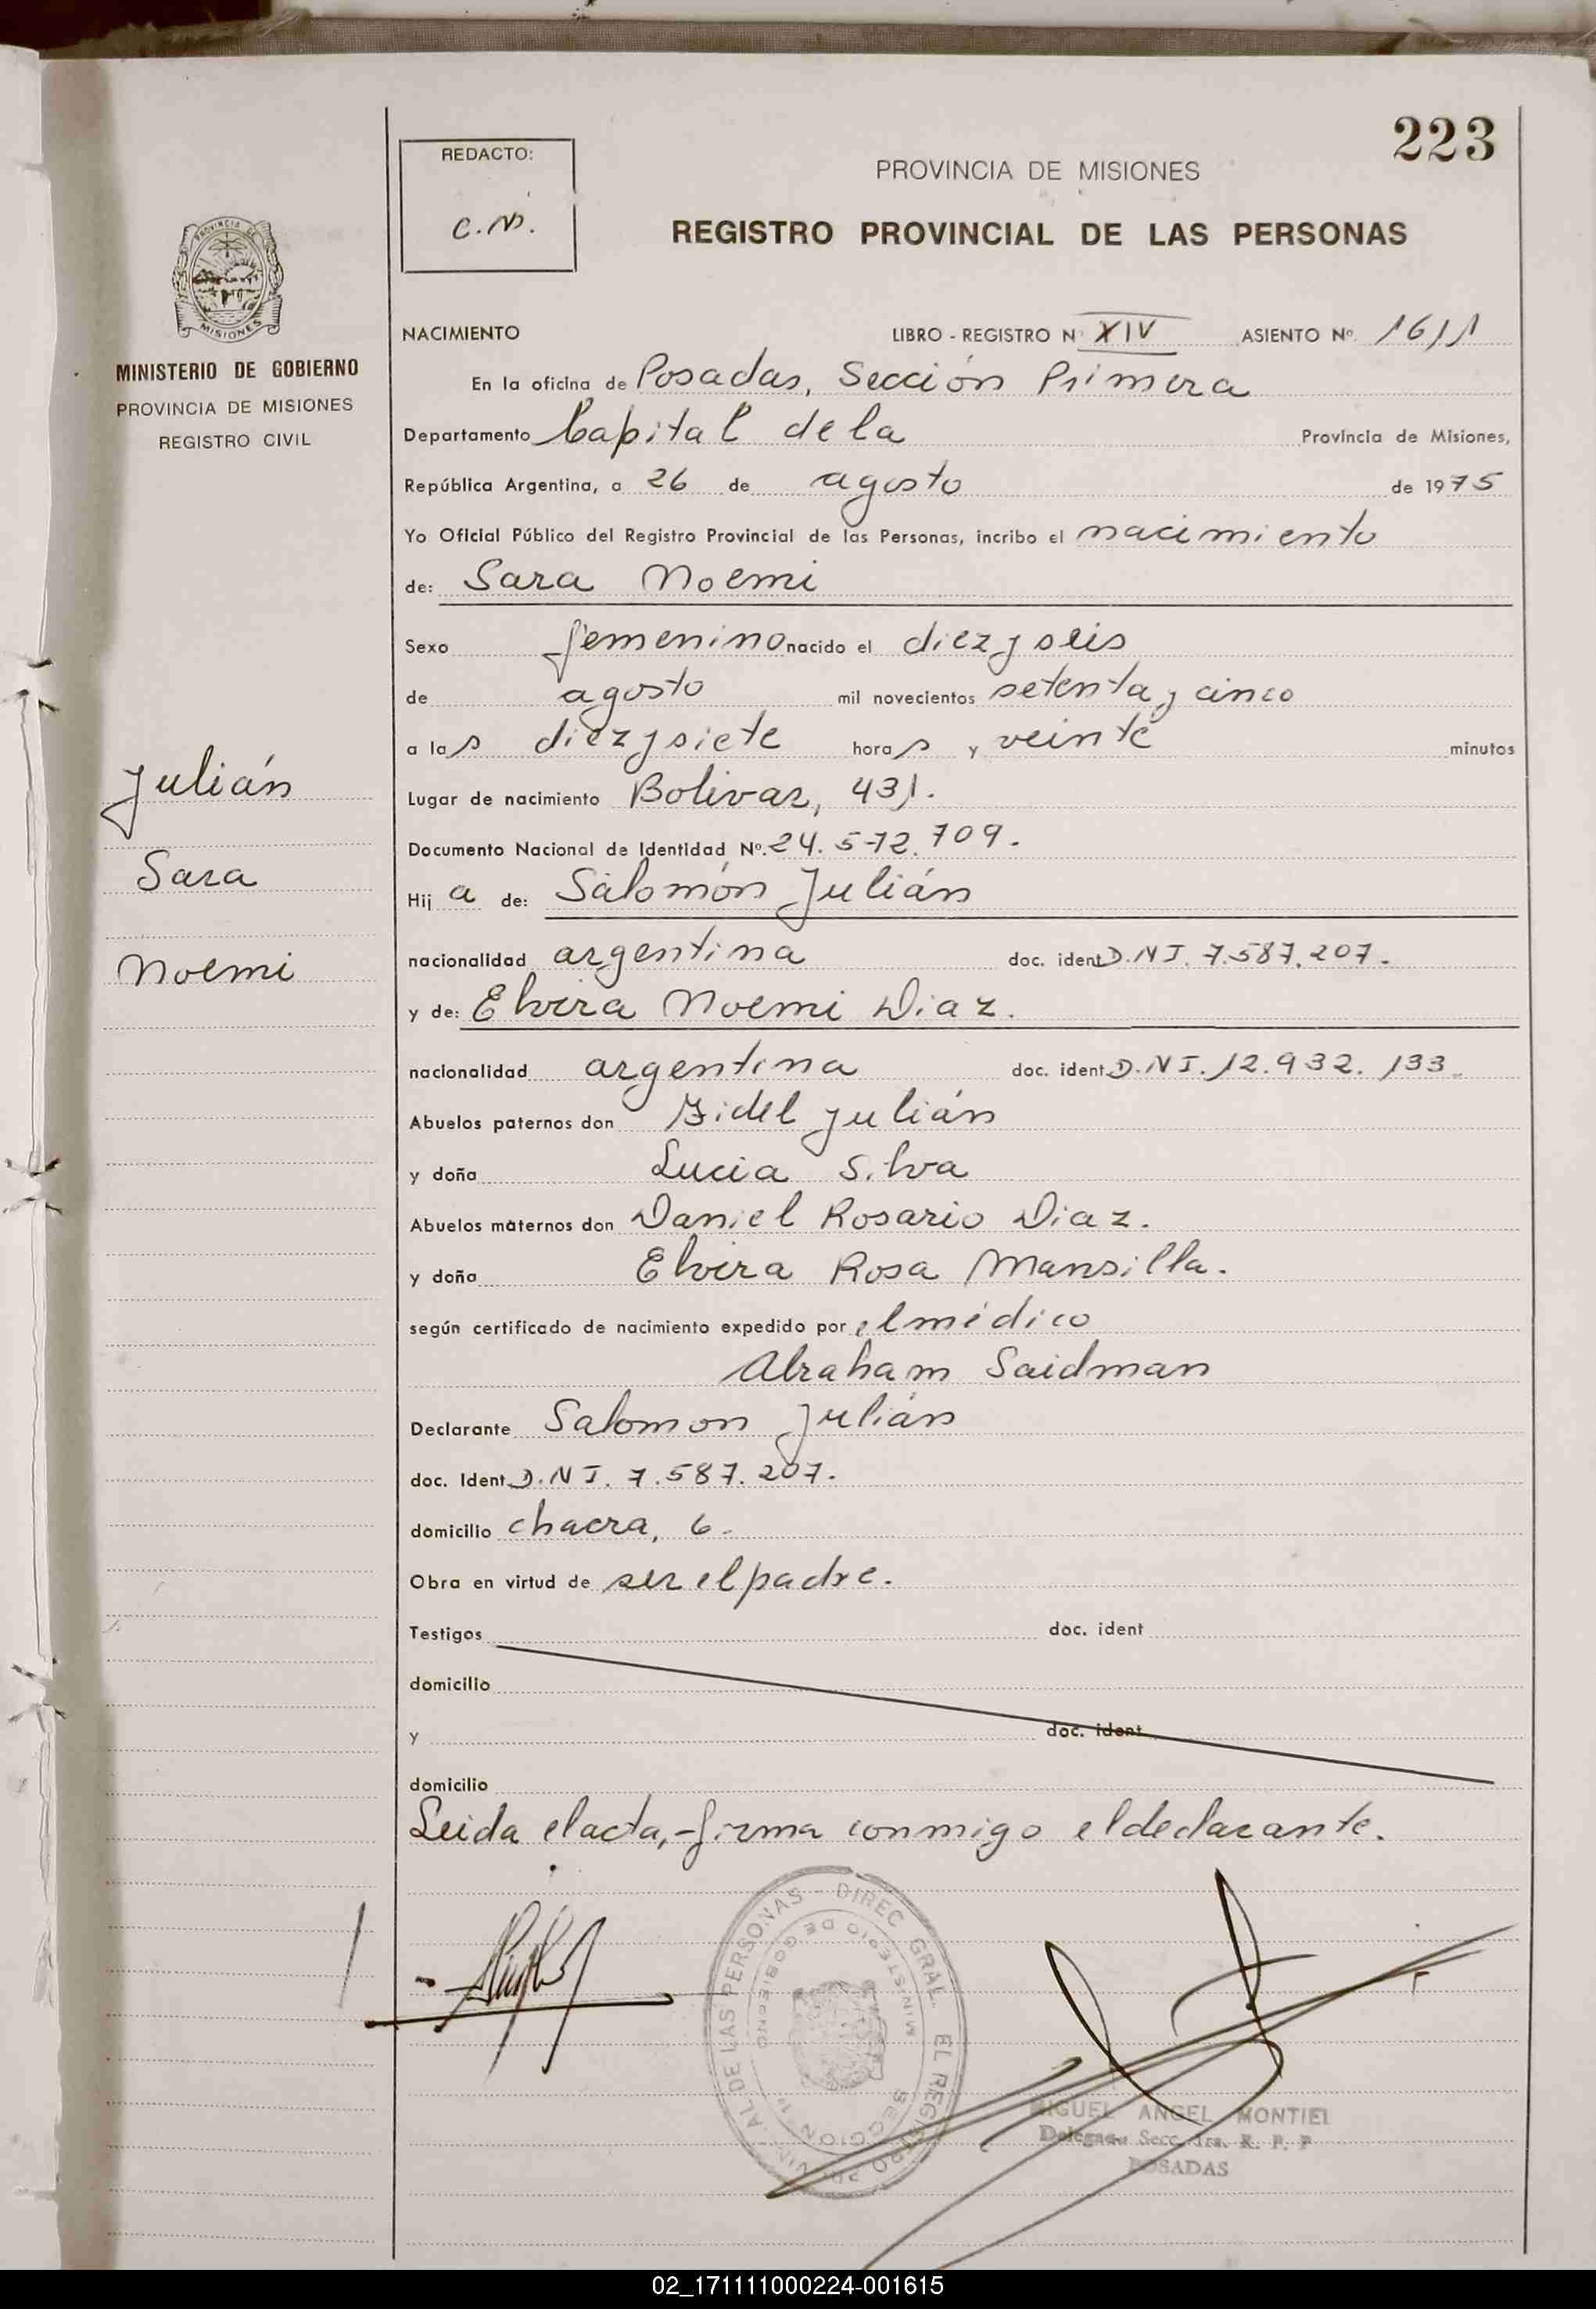 223
REDACTO:
C.N.
PROVINCIA DE MISIONES
REGISTRO PROVINCIAL DE LAS PERSONAS
PROVINCIA DE
MISIONES
MINISTERIO DE GOBIERNO
PROVINCIA DE MISIONES
REGISTRO CIVIL
Julián
Sara
Noemi
NACIMIENTO LIBRO - REGISTRO Nº XIV ASIENTO Nº 1611
En la oficina de Posadas, Sección Primera
Departamento Capital de la Provincia de Misiones,
República Argentina, a 26 de agosto de 1975
Yo Oficial Público del Registro Provincial de las Personas, incribo el nacimiento
de: Sara Noemi
Sexo femenino nacido el diez y seis
de agosto mil novecientos setenta y cinco
a las diez y siete horas y veinte minutos
Lugar de nacimiento Bolivar, 431.
Documento Nacional de Identidad Nº. 24.572.709.
Hij a de: Salomón Julián
nacionalidad argentina doc. ident D.N.I. 7.587.207.
y de: Elvira Noemi Diaz.
nacionalidad argentina doc. ident D.N.I. 12.932.133.
Abuelos paternos don Fidel Julián
y doña Lucia Silva
Abuelos maternos don Daniel Rosario Diaz.
y doña Elvira Rosa Mansilla.
según certificado de nacimiento expedido por el médico
Abraham Saidman
Declarante Salomon Julián
doc. Ident D.N.I. 7.587.207.
domicilio chacra, 6.
Obra en virtud de ser el padre.
Testigos doc. ident
domicilio
y doc. ident
domicilio
Leida el acta, firma conmigo el declarante.
DIREC. GRAL. EL REGISTRO PROVINCIAL DE LAS PERSONAS
MINISTERIO DE GOBIERNO
SECCION 1ª
MIGUEL ANGEL MONTIEL
Delegado Secc. 1ra. R. P. P
POSADAS
02_171111000224-001615